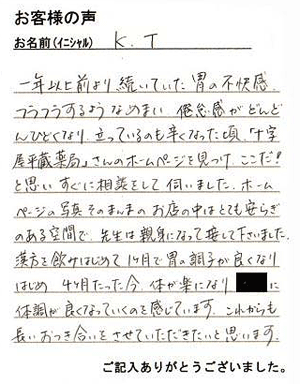 お客様の声
お名前(イニシャル) K.T
一年以上前より続いていた胃の不快感、
フラフラするようなめまい 倦怠感がどんど
んひどくなり、立っているのも辛くなった頃、「十字
屋平蔵薬局」さんのホームページを見つけ ここだ!
と思い すぐに相談をして伺いました。ホーム
ページの写真そのまんまの お店の中はとても安らぎ
のある空間で、先生は親身になって接して下さいました。
漢方を飲みはじめて 1ヶ月で胃の調子が良くなり
はじめ 4ヶ月たった今、体が楽になり に
体調が良くなっていくのを感じています。これからも
長いおつき合いをさせていただきたいと思います。
ご記入ありがとうございました。